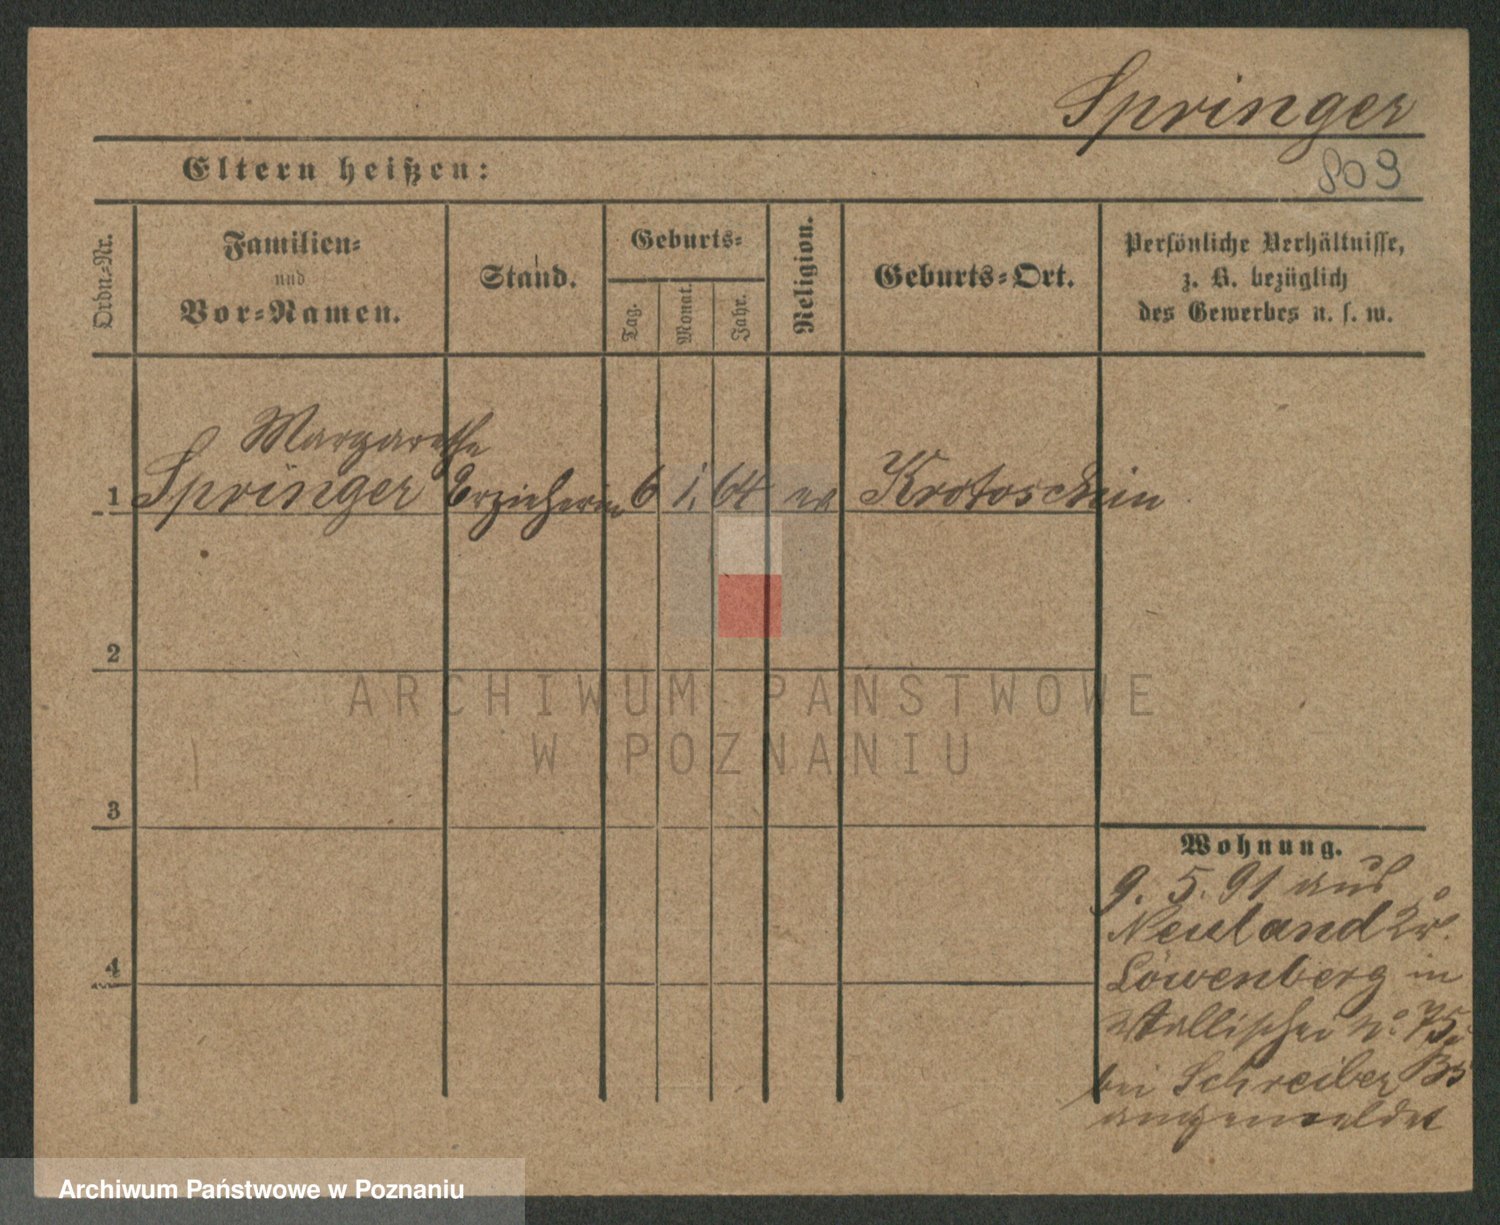 Springer
Eltern heißen:
809
Ordn.-Nr.
Familien-
und
Vor-Namen.
Stand.
Geburts-
Tag.
Monat.
Jahr.
Religion.
Geburts-Ort.
Persönliche Verhältnisse,
z. B. bezüglich
des Gewerbes u. s. w.
Margarethe
1 Springer Erzieherin 6 1. 64 ev Krotoschin
2
ARCHIWUM PAŃSTWOWE
W POZNANIU
3
Wohnung.
9. 5. 91 aus
Neuland Kr.
4
Löwenberg in
Wallischei No 75
bei Schreiber
angemeldet
Archiwum Państwowe w Poznaniu